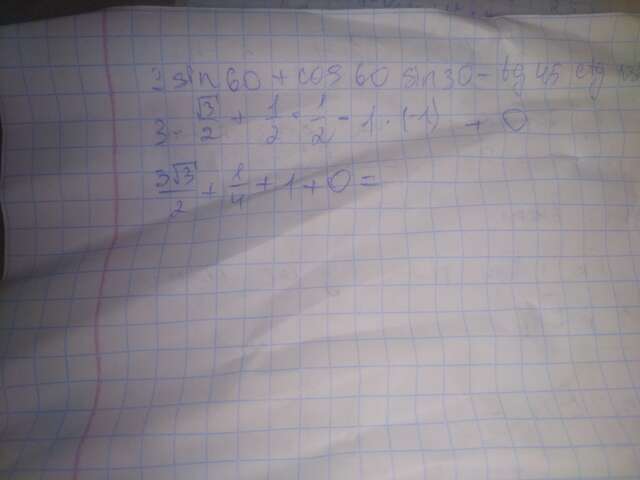 3 sin 60 + cos 60 sin 30 - tg 45 ctg
3 · √3/2 + 1/2 · 1/2 - 1 · (-1) + 0
3√3/2 + 1/4 + 1 + 0 =